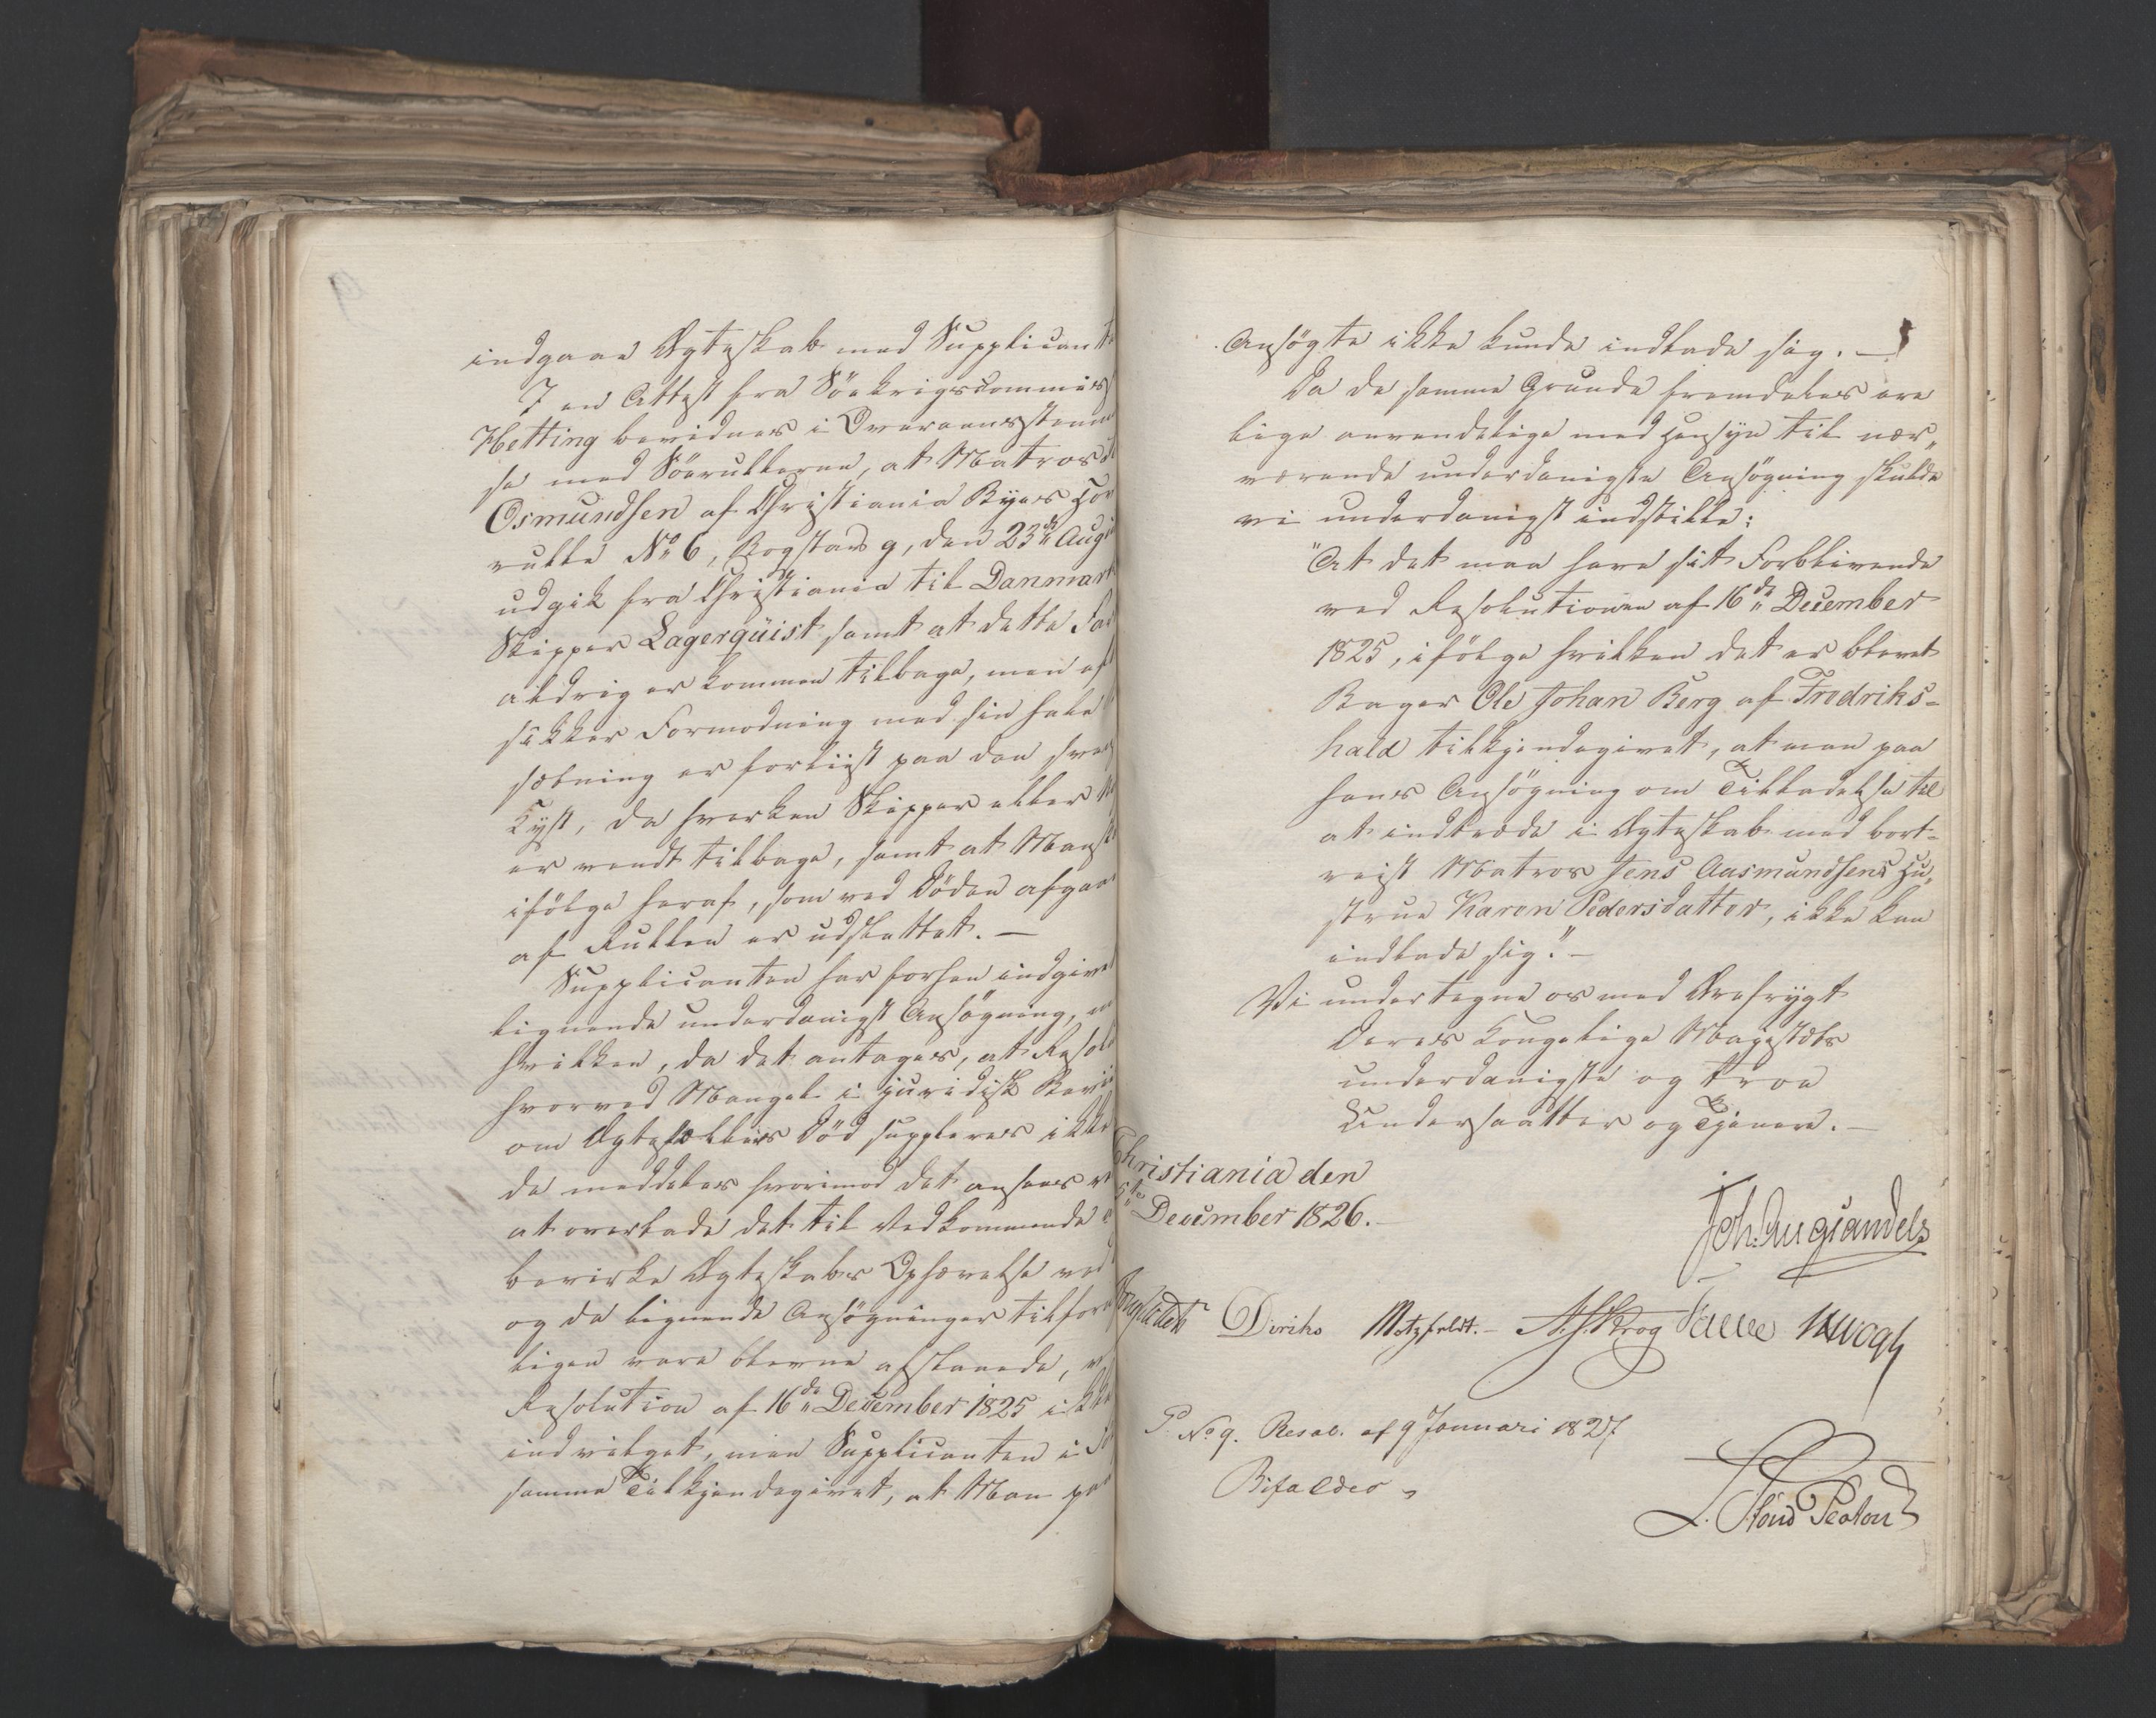 indgaae Ægteskab med Supplicant
I en Attest fra Söekrigscommiss
Hetting bevidnes i Overeensstemm
se med Söerullerne, at Matros
Osmundsen af Christiania Byes
rulle No 6, Bogstav g, den 23de Aug
udgik fra Christiania til Danmark
Skipper Lagerqüist samt at dette
aldrig er kommen tilbage, men ef
sikker Formodning med sin hele
sætning er forliist paa den sven
Kyst, da hverken Skipper eller
er vendt tilbage, samt at Mands
ifölge heraf, som ved Döden afgaae
af Rullen er udslettet. —
Supplicanten har forhen indgivet
lignende underdanigst Ansögning,
hvilken, da det antages, at Resol
hvorved Mangel i juridisk Beviis
om Ægtefælles Död suppleres ikke
de meddeles hvorimod det ansees
at overlade det til Vedkommende
bevirke Ægteskabs Ophævelse ved
og da lignende Ansögninger tilforn
ligen vare blevne afslaaede,
Resolution af 16de December 1825 ikke
indvilget, men Supplicanten i
samme Tilkjendegivet, at Man paa
Ansögte ikke kunde indlade sig. —
Da de samme Grunde fremdeles ere
lige anvendelige med Hensyn til nær„
værende underdanigste Ansögning skulde
vi underdanigst indstille:
"At det maa have sit Forblivende
ved Resolutionen af 16de December
1825, ifölge hvilken det er blevet
Bager Ole Johan Berg af Fredriks-
hald tilkjendegivet, at man paa
hans Ansögning om Tilladelse til
at indtræde i Ægteskab med bort-
reist Matros Jens Aasmundsens Hu„
strue Karen Pedersdatter, ikke kan
indlade sig". —
Vi undertegne os med Ærefrygt
Deres Kongelige Majestæts
underdanigste og troe
Undersaatter og Tjenere. —
Christiania den
5te December 1826. —
Joh: Aug: Sandels
Diriks Motzfeldt. — Krog Fasting
No 9. Resol. af 9 Januari 1827
Bifaldes